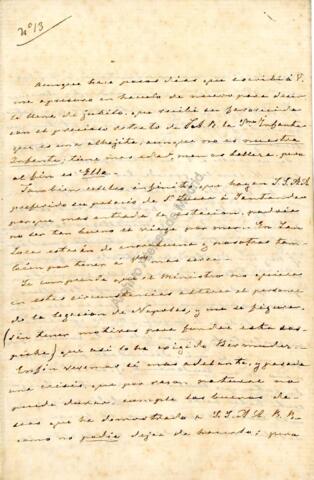 Nº 13
Aunque hace pocos dias que escribí á V.
me apresuro en hacerlo de nuevo para decir
le llena de júbilo, que recibí su favorecida
con el precioso retrato de S.A.R. la Infanta
que es una alhajita; aunque no es nuestra
Infanta; tiene mas edad, menos belleza, pero
al fin es Ella.
Tambien celebro infinito, que hayan S.S.A.A.
preferido su palacio de á Santander
porque mas entrada la estacion, podria
no ser tan bueno el viage por mar. En San
Lucar estarán de enhorabuena y nosotras tam
bien por tener á V. mas cerca.
Se comprende que el Ministro no quiera
en estas circunstancias alterar el personal
de la legacion de Napoles, y me se figura,
(sin tener motivos para fundar esta sos
pecha) que así lo ha exigido Bermudez.
En fin veremos si mas adelante, y pasada
una crisis, que por razon natural no
puede durar, cumple los buenos de
seos que ha demostrado á S.S.A.A. R.R.
como no podia dejar de hacerlo; pero